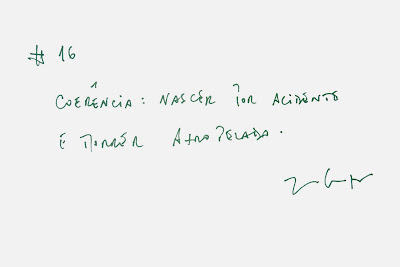 # 16
COERÊNCIA: NASCER POR ACIDENTE
E MORRER ATROPELADA.